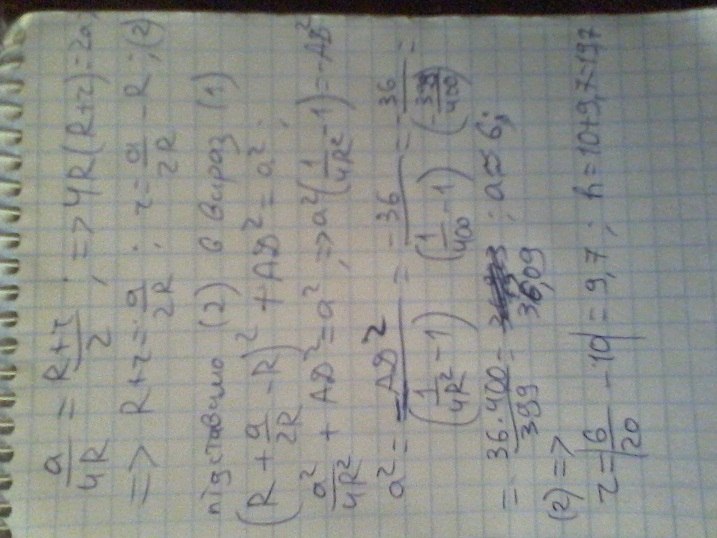 a/4R = (R+r)/2 ; => 4R(R+r)=2a;
=> R+r = a/2R ; r = a/2R - R ; (2)
підставимо (2) в вираз (1)
(R + a/2R - R)² + AD² = a² ;
a²/4R² + AD² = a² ; => a²(1/4R² - 1) = -AD²
a² = -AD²/(1/4R² - 1) = -36/(1/400 - 1) = -36/(-399/400) =
= 36·400/399 = 36,09 ; a≈6;
(2) =>
r = 6/20 - 10 = 9,7 ; h = 10+9,7=19,7